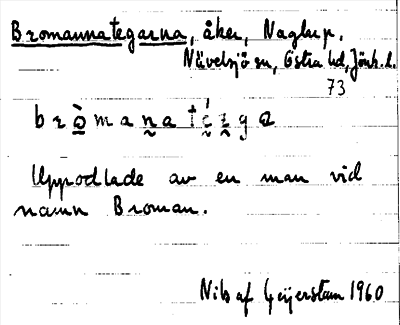 Bromannategarna, åker, Naglarp,
Nävelsjö sn, Östra hd, Jönk. l.
73
bròmanatégga
Uppodlade av en man vid
namn Broman.
Nils af Geijerstam 1960